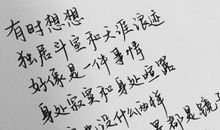 有时想想
独居斗室和天涯浪迹
好像是一件事情
身处寂寞和身处喧嚣
没什么两样
都是